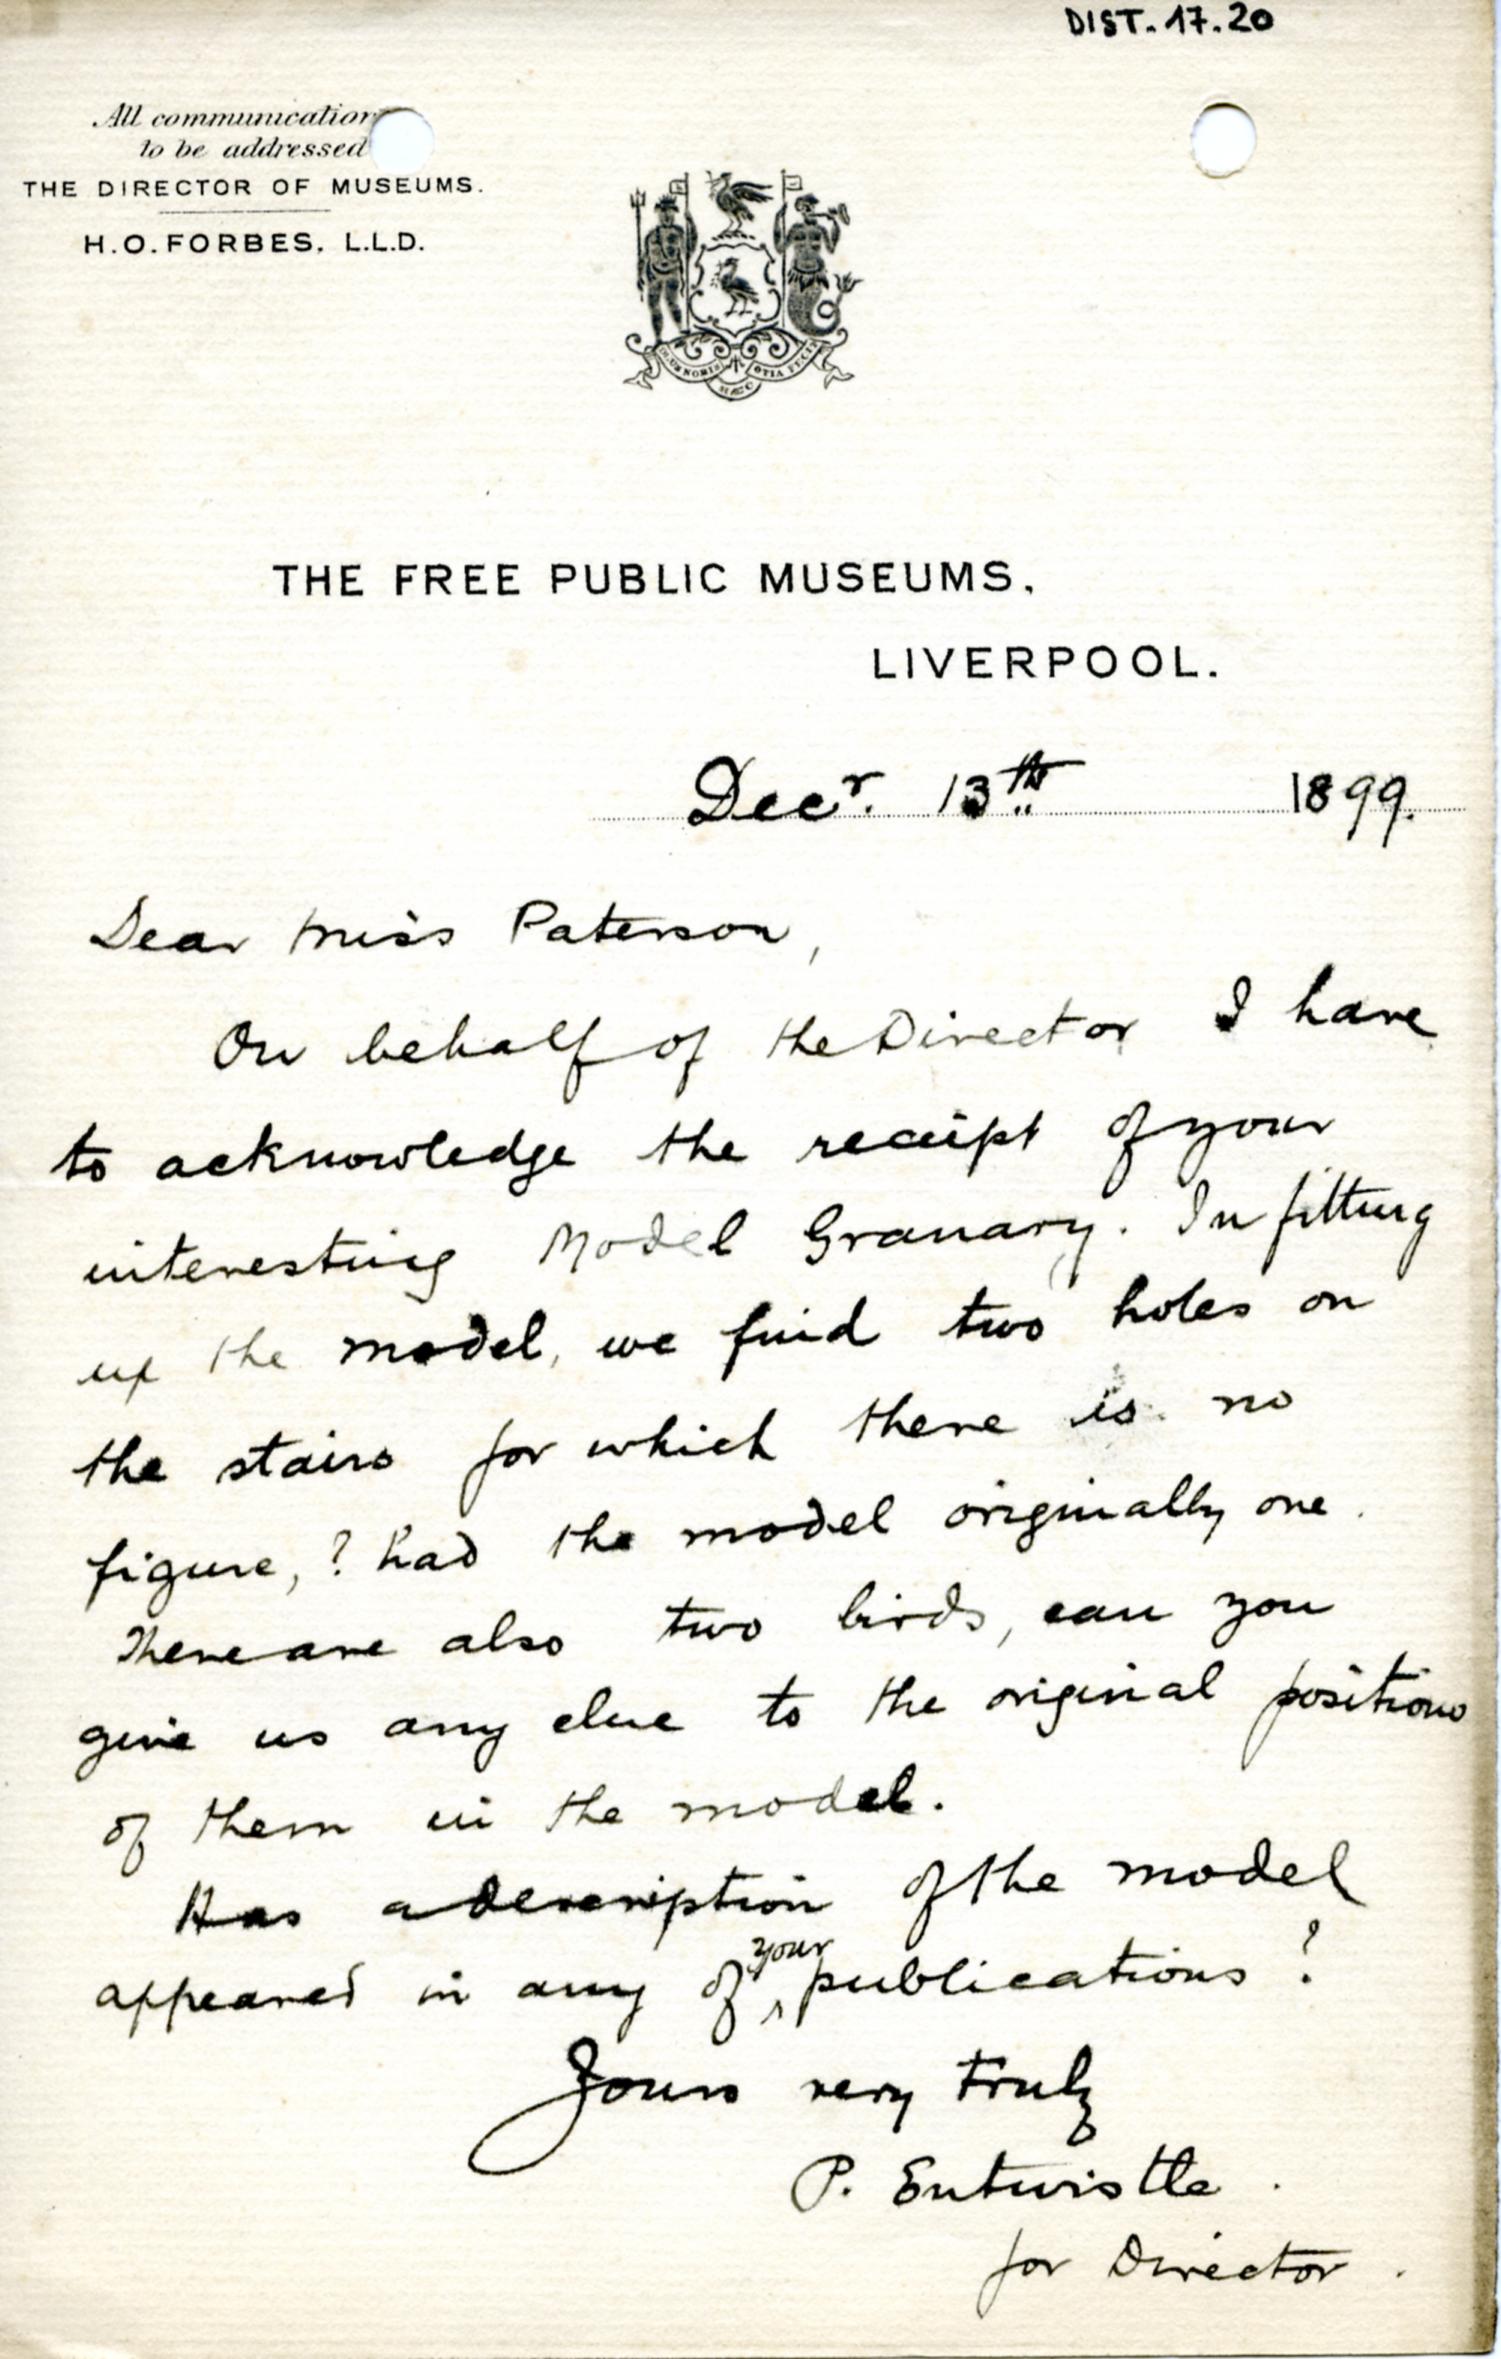 DIST. 17.20
All communication
to be addressed
THE DIRECTOR OF MUSEUMS.
H.O. FORBES, L.L.D.
DEUS NOBIS
HÆC
OTIA FECIT
THE FREE PUBLIC MUSEUMS,
LIVERPOOL.
Decr. 13th 1899.
Dear Miss Paterson,
On behalf of the Director I have
to acknowledge the receipt of your
interesting Model Granary. In fitting
up the model, we find two holes on
the stairs for which there is no
figure, ? had the model originally one.
There are also two birds, can you
give us any clue to the original positions
of them in the model.
Has a description of the model
appeared in any of your publications ?
Yours very truly
P. Entwistle.
for Director.